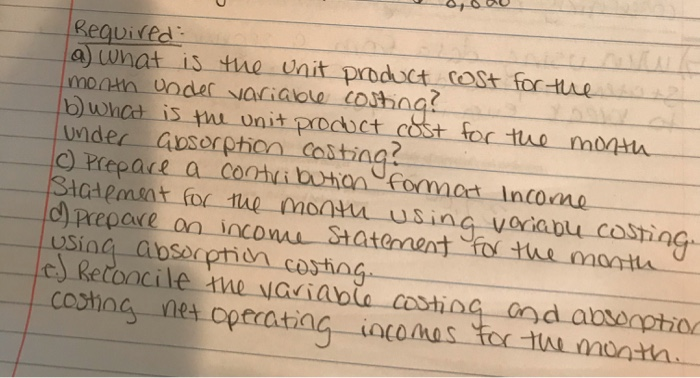 Required:
a) What is the unit product cost for the
month under variable costing?
b) what is the unit product cost for the month
under absorption costing?
c) Prepare a contribution format income
Statement for the month using variable costing.
d) prepare an income statement for the month
using absorption costing.
e) Reconcile the variable costing and absorption
costing net operating incomes for the month.